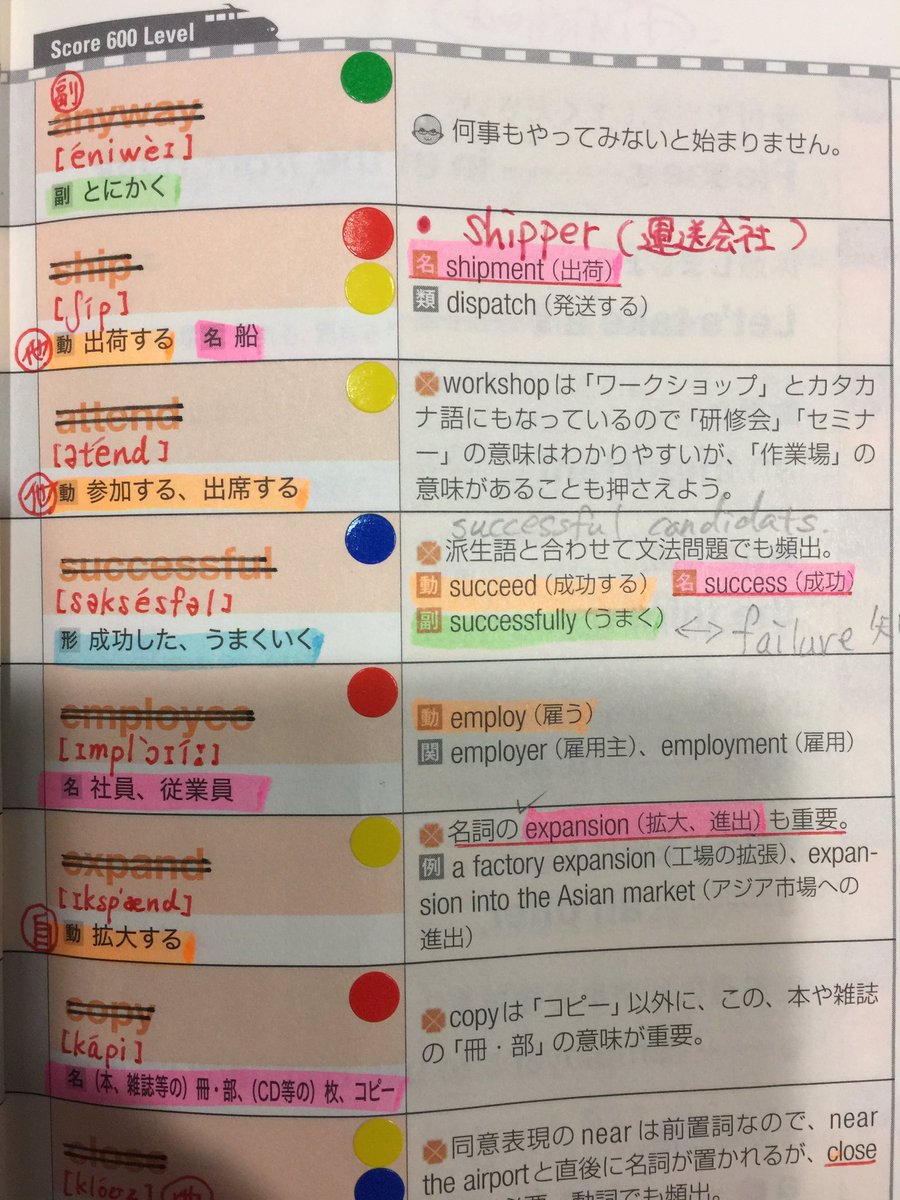 Score 600 Level
副
anyway
[éniwèɪ]
副 とにかく
何事もやってみないと始まりません。
ship
[ʃíp]
他 動 出荷する 名 船
• shipper (運送会社)
名 shipment (出荷)
類 dispatch (発送する)
attend
[əténd]
他 動 参加する、出席する
workshopは「ワークショップ」とカタカ
ナ語にもなっているので「研修会」「セミナ
ー」の意味はわかりやすいが、「作業場」の
意味があることも押さえよう。
successful
[səksésfəl]
形 成功した、うまくいく
successful candidats.
派生語と合わせて文法問題でも頻出。
動 succeed (成功する) 名 success (成功)
副 successfully (うまく) <-> failure
employee
[ɪmplɔ̀ɪíː]
名 社員、従業員
動 employ (雇う)
関 employer (雇用主)、employment (雇用)
expand
[ɪkspǽnd]
自 動 拡大する
名詞の expansion (拡大、進出) も重要。
例 a factory expansion (工場の拡張)、expan-
sion into the Asian market (アジア市場への
進出)
copy
[kápi]
名 (本、雑誌等の) 冊・部、(CD等の) 枚、コピー
copyは「コピー」以外に、この、本や雑誌
の「冊・部」の意味が重要。
close
同意表現のnearは前置詞なので、near
the airportと直後に名詞が置かれるが、close
動詞でも頻出。